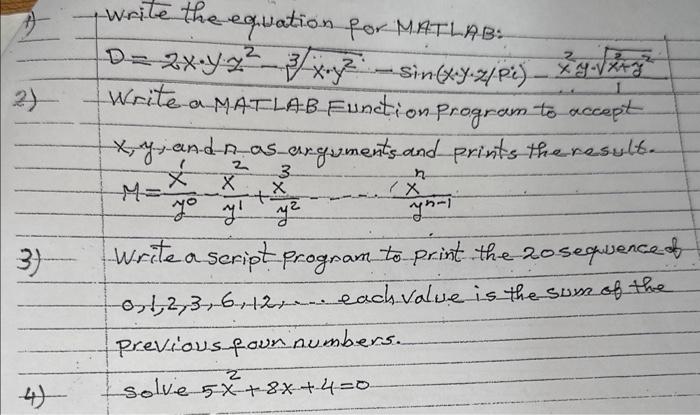 1) Write the equation for MATLAB:
D = 2x·y·z² - ∛x·y² - sin(x·y·z/Pi) - x²y·√x²+y²
2) Write a MATLAB Function Program to accept
x, y, and n as arguments and prints the result.
M = x¹/y⁰ - x²/y¹ + x³/y² ------ xⁿ/yⁿ⁻¹
3) Write a script program to print the 20 sequence of
0, 1, 2, 3, 6, 12, .... each value is the sum of the
previous four numbers.
4) solve 5x² + 8x + 4 = 0